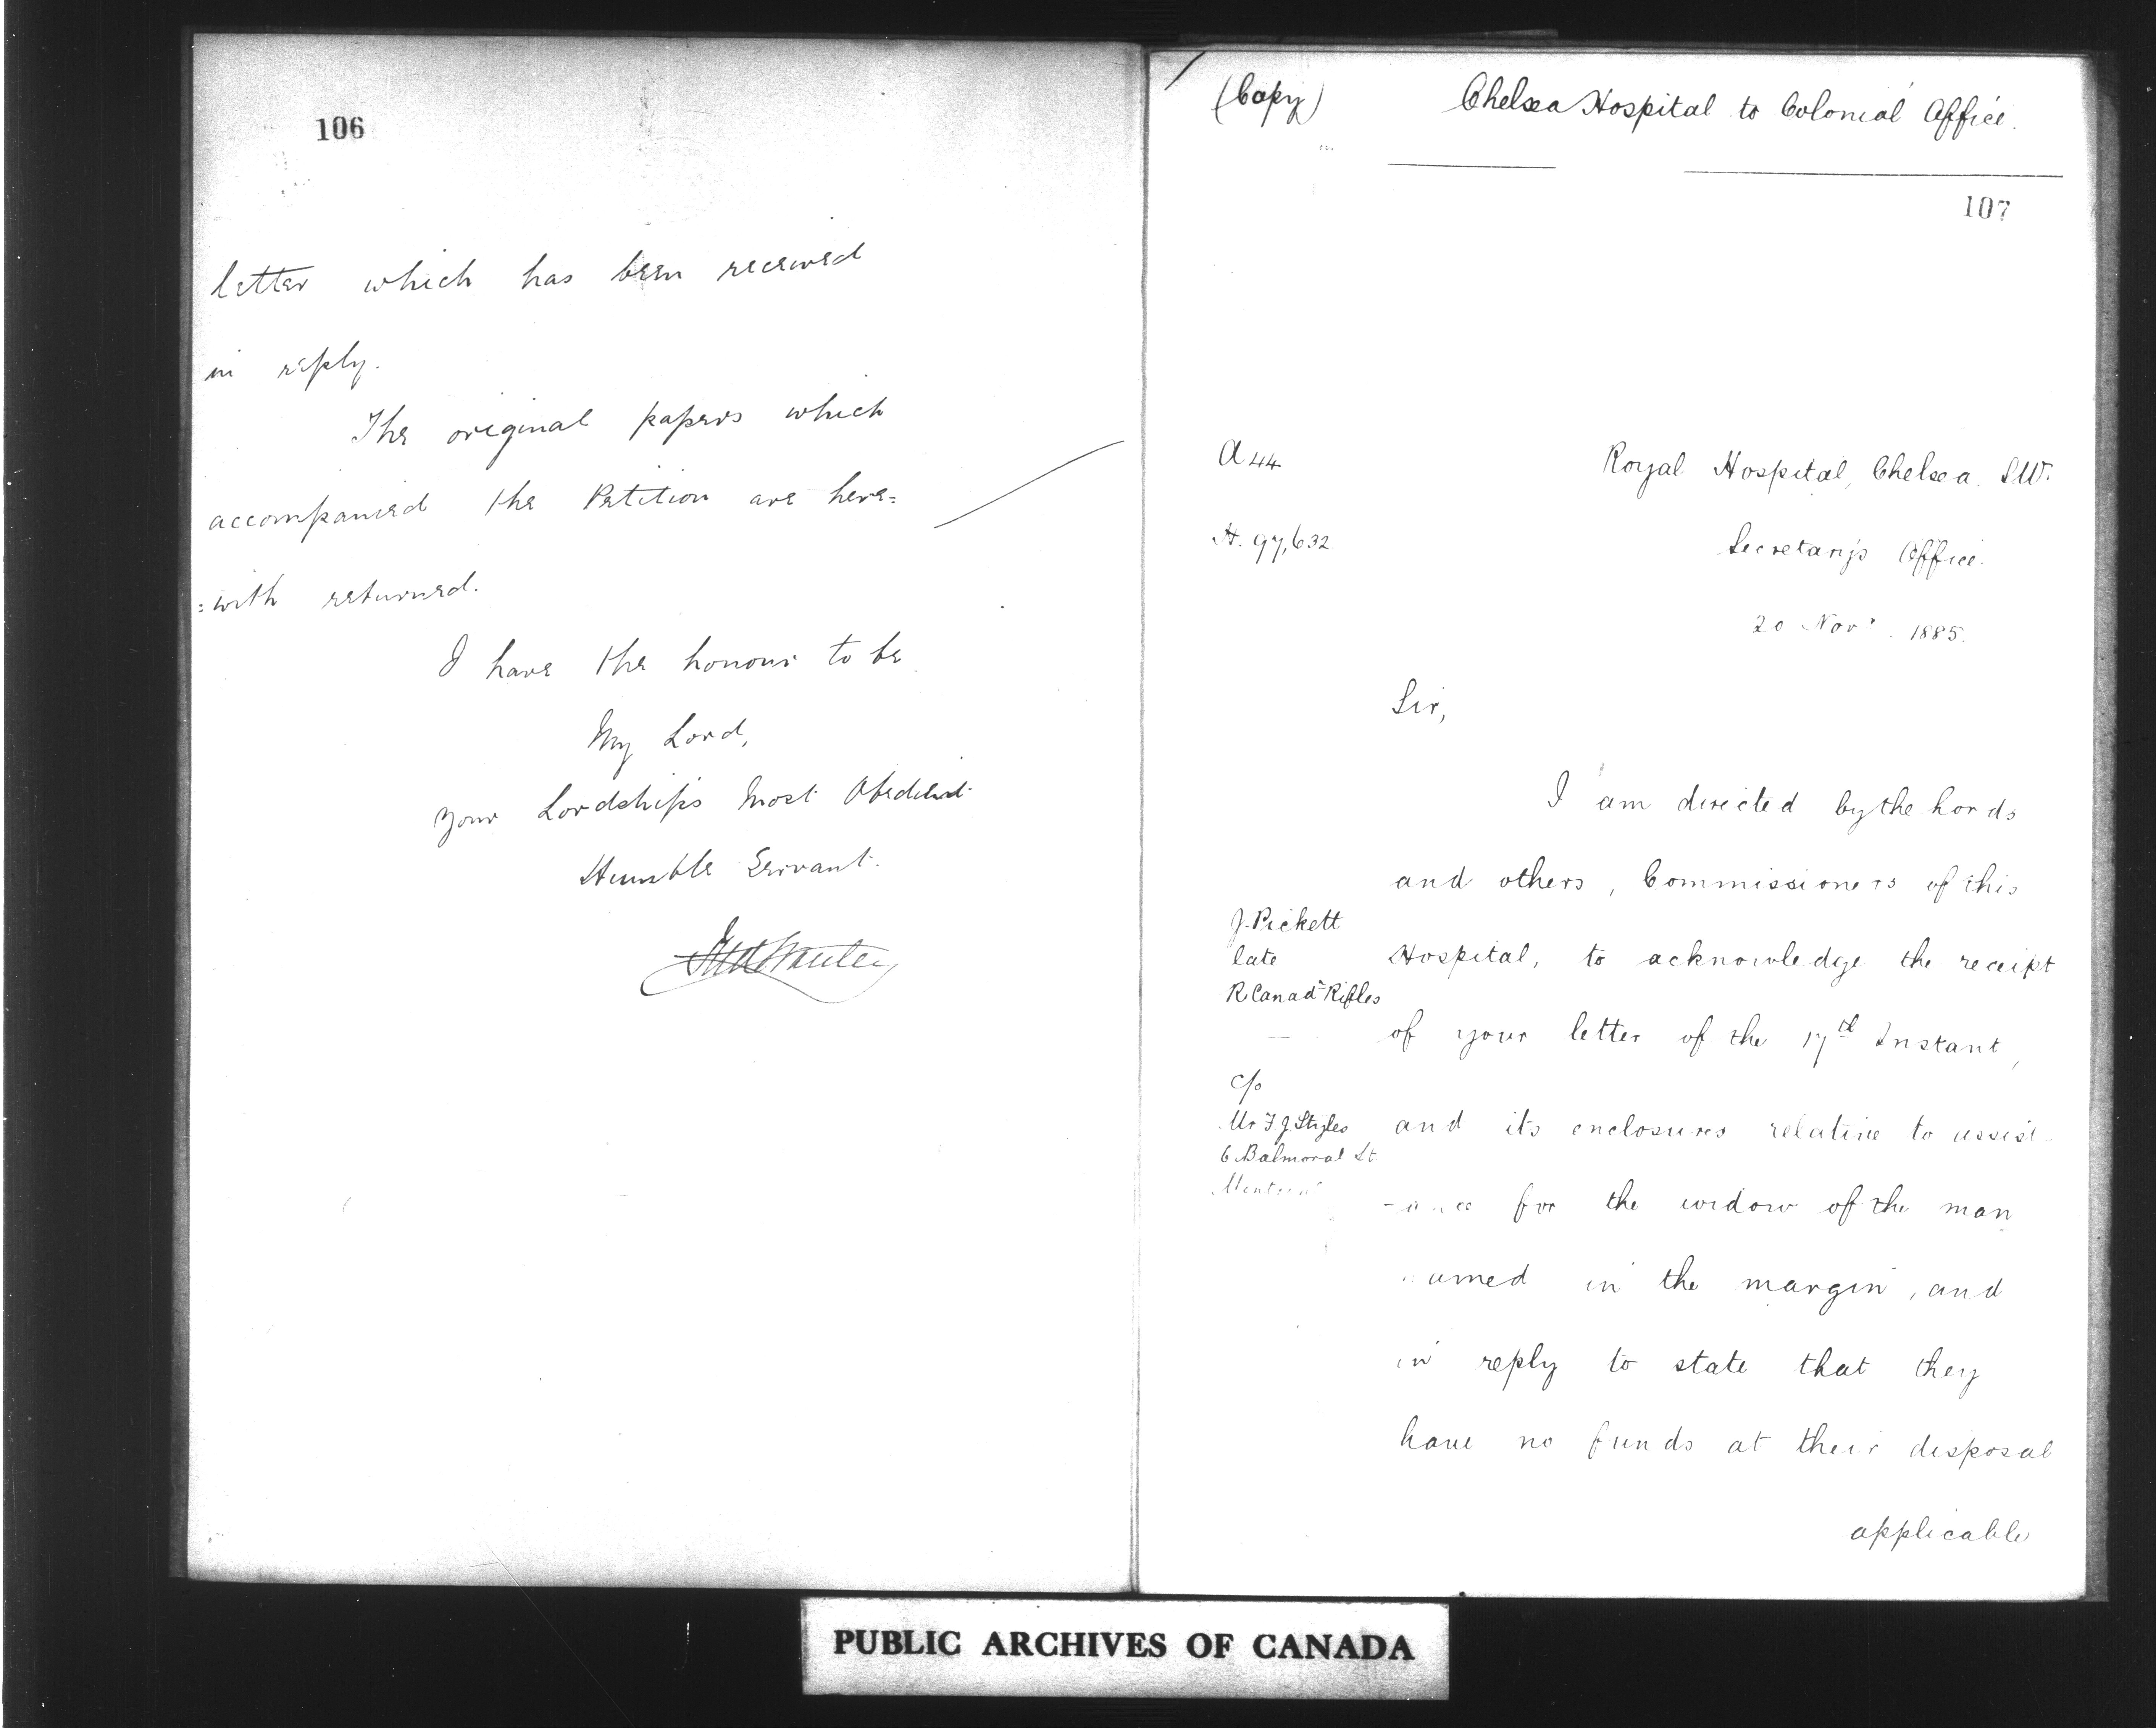 106
letter which has been received
in reply.
The original papers which
accompanied the Petition are here=
=with returned.
I have the honour to be
My Lord,
Your Lordship's Most Obedient
Humble Servant.
(Copy)
Chelsea Hospital to Colonial Office.
107
A 44
Royal Hospital, Chelsea. S.W.
H. 97,632
Secretary's Office.
20 Novr. 1885.
Sir,
I am directed by the Lords
and others, Commissioners of this
J. Pickett
late
R. Canadn Rifles
Hospital, to acknowledge the receipt
of your letter of the 17th Instant,
c/o
Mr F J Styles
6 Balmoral St
Montreal
and its enclosures relative to assist
-ance for the widow of the man
named in the margin, and
in reply to state that they
have no funds at their disposal
applicable
PUBLIC ARCHIVES OF CANADA